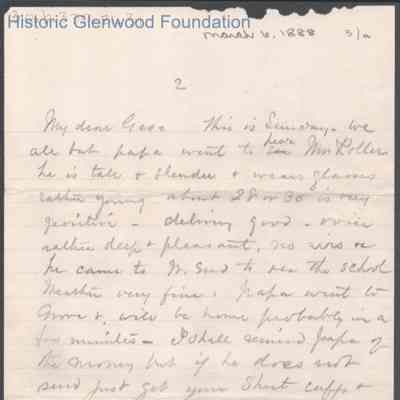 Historic Glenwood Foundation
March 6, 1888 3/a
2
My dear Gess This is Sunday. We
all but papa went to hear Mr. Potter
he is tall & slender & wears glasses
rather young about 28 or 30 is very
positive - delivery good - voice
rather deep & pleasant, no
he came to N. to see the school
Weather very fine. Papa went to
Grove & will be home probably in a
few minutes - I shall remind Papa of
the money but if he does not
send just get your Shirt cuffs &